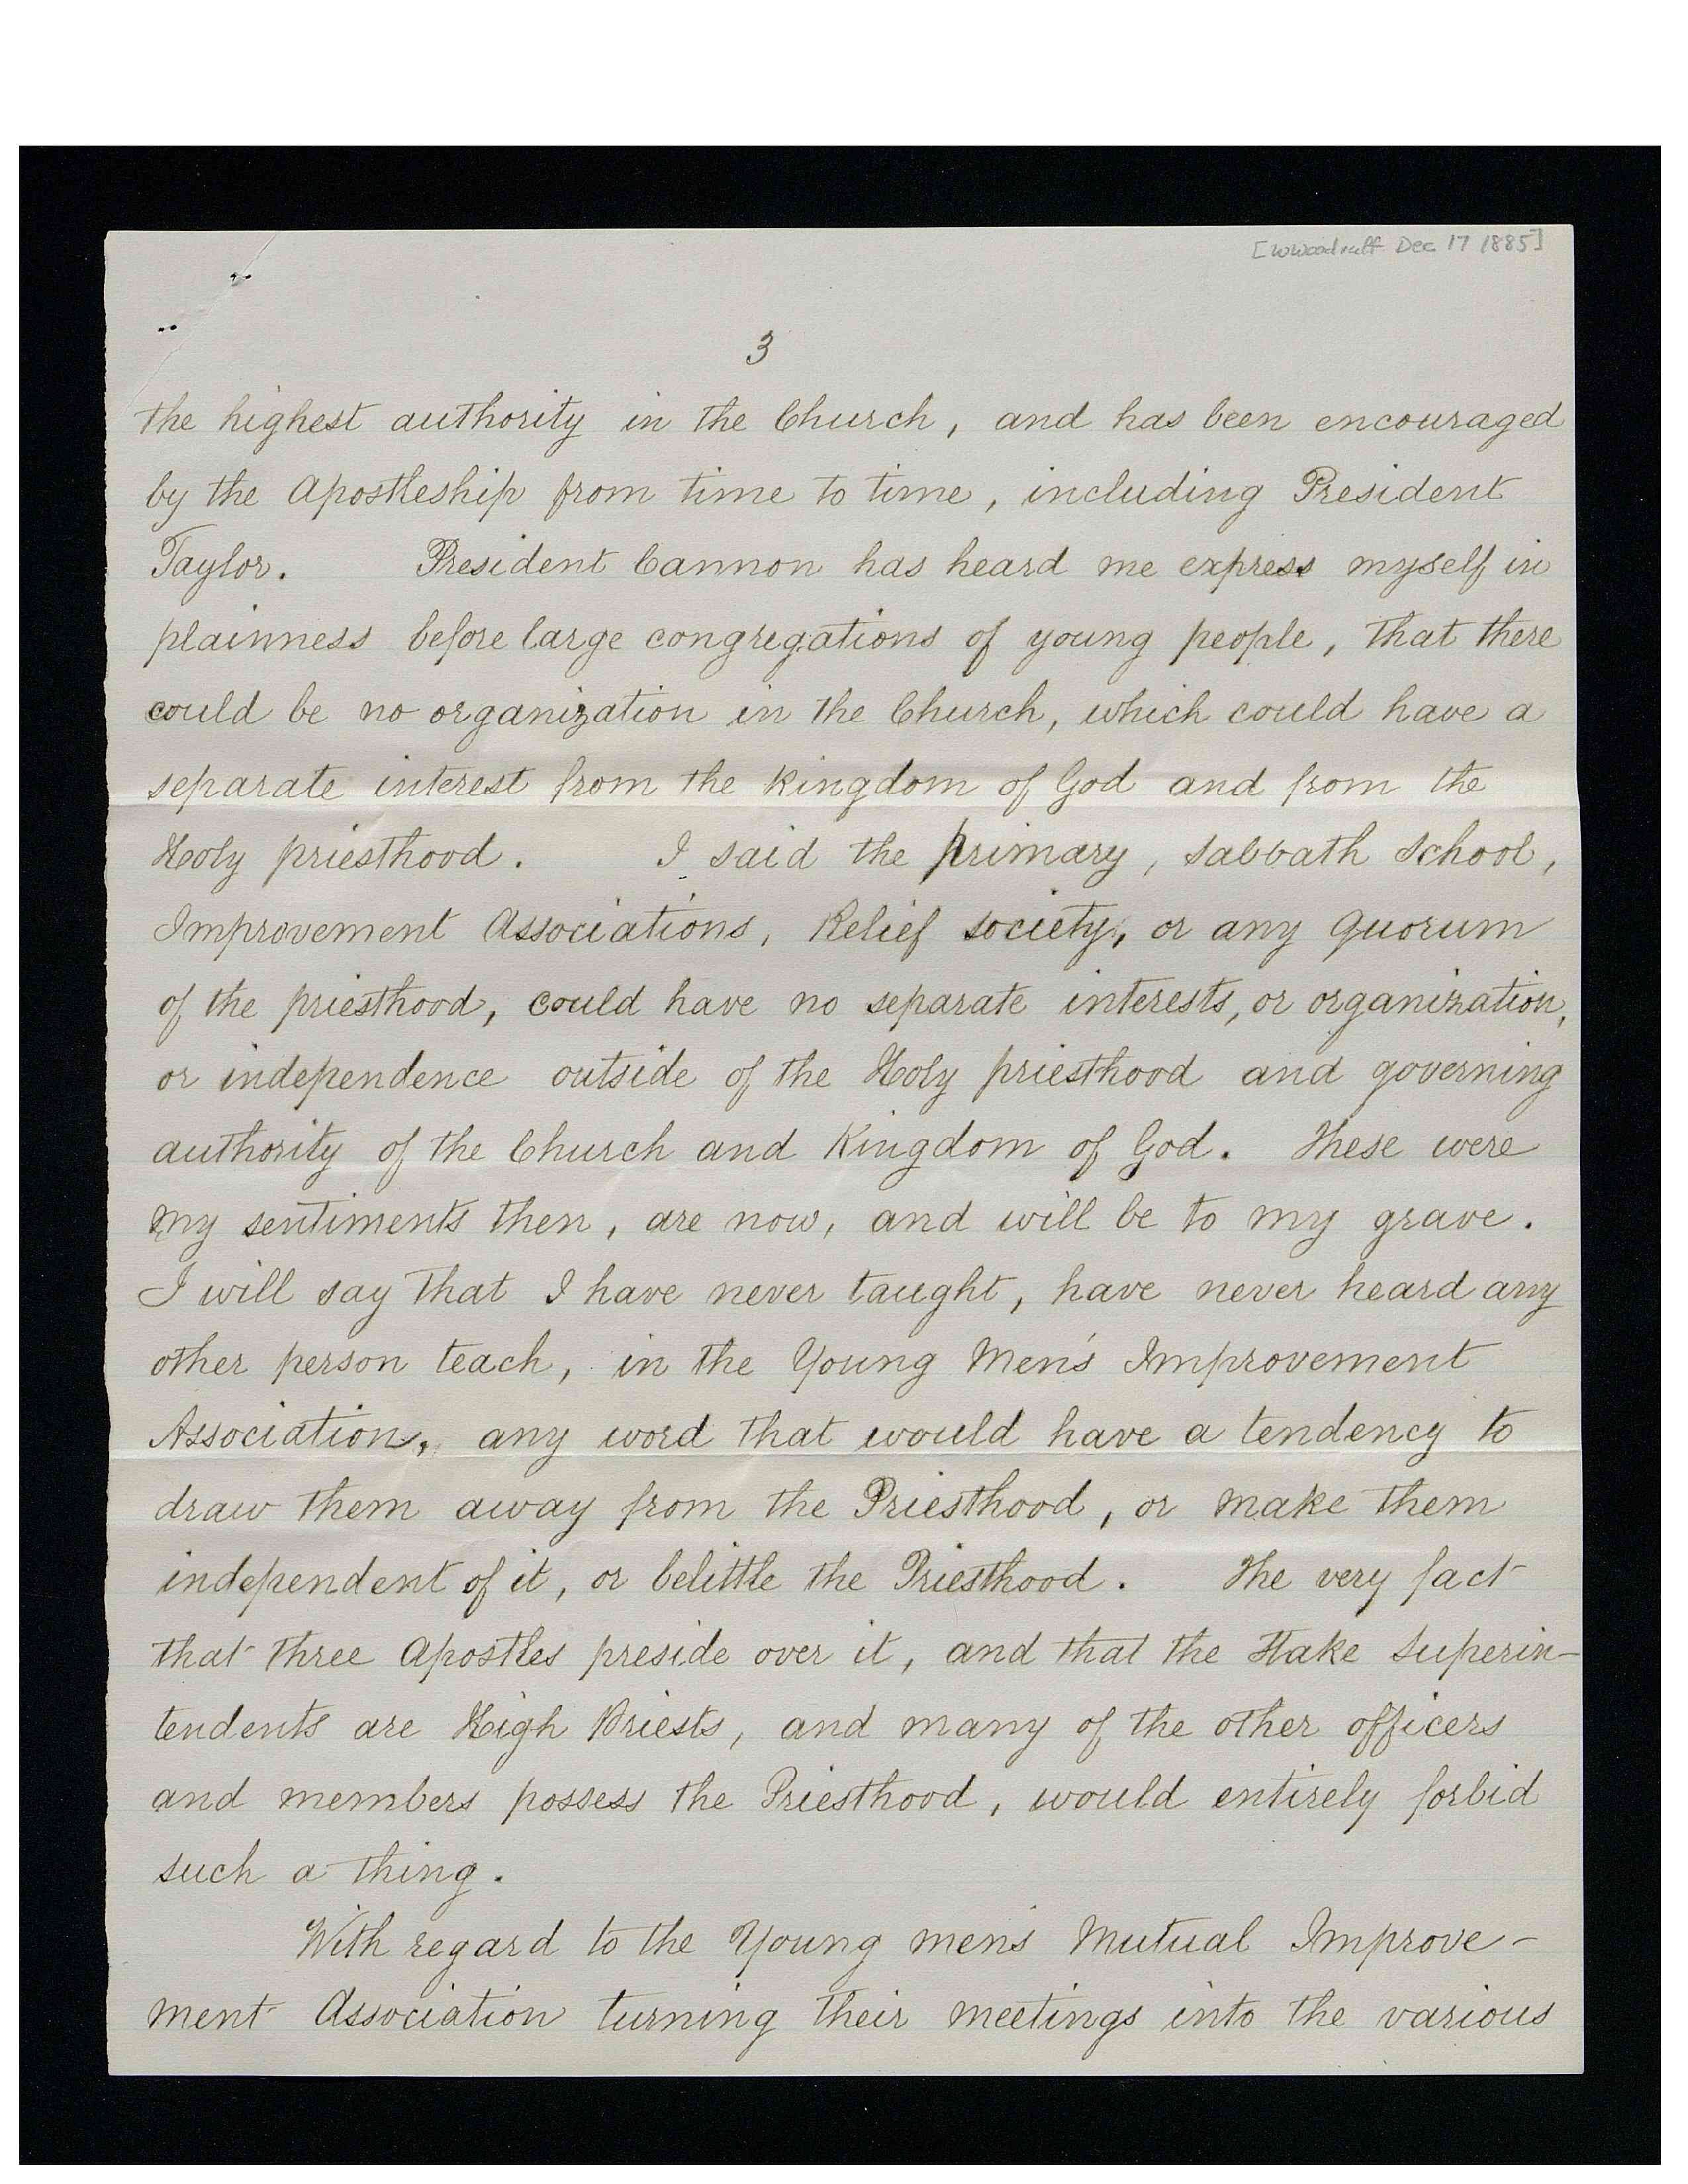 [WWoodruff Dec 17 1885]
3
the highest authority in the Church, and has been encouraged
by the Apostleship from time to time, including President
Taylor. President Cannon has heard me express myself in
plainness before large congregations of young people, that there
could be no organization in the Church, which could have a
separate interest from the Kingdom of God and from the
Holy priesthood. I said the primary, Sabbath School,
Improvement Associations, Relief society, or any quorum
of the priesthood, could have no separate interests, or organization,
or independence outside of the Holy priesthood and governing
authority of the Church and Kingdom of God. These were
my sentiments then, are now, and will be to my grave.
I will say that I have never taught, have never heard any
other person teach, in the Young Men's Improvement
Association, any word that would have a tendency to
draw them away from the Priesthood, or make them
independent of it, or belittle the Priesthood. The very fact
that three Apostles preside over it, and that the Stake Superin-
tendents are High Priests, and many of the other officers
and members possess the Priesthood, would entirely forbid
such a thing.
With regard to the Young men's Mutual Improve-
ment Association turning their meetings into the various